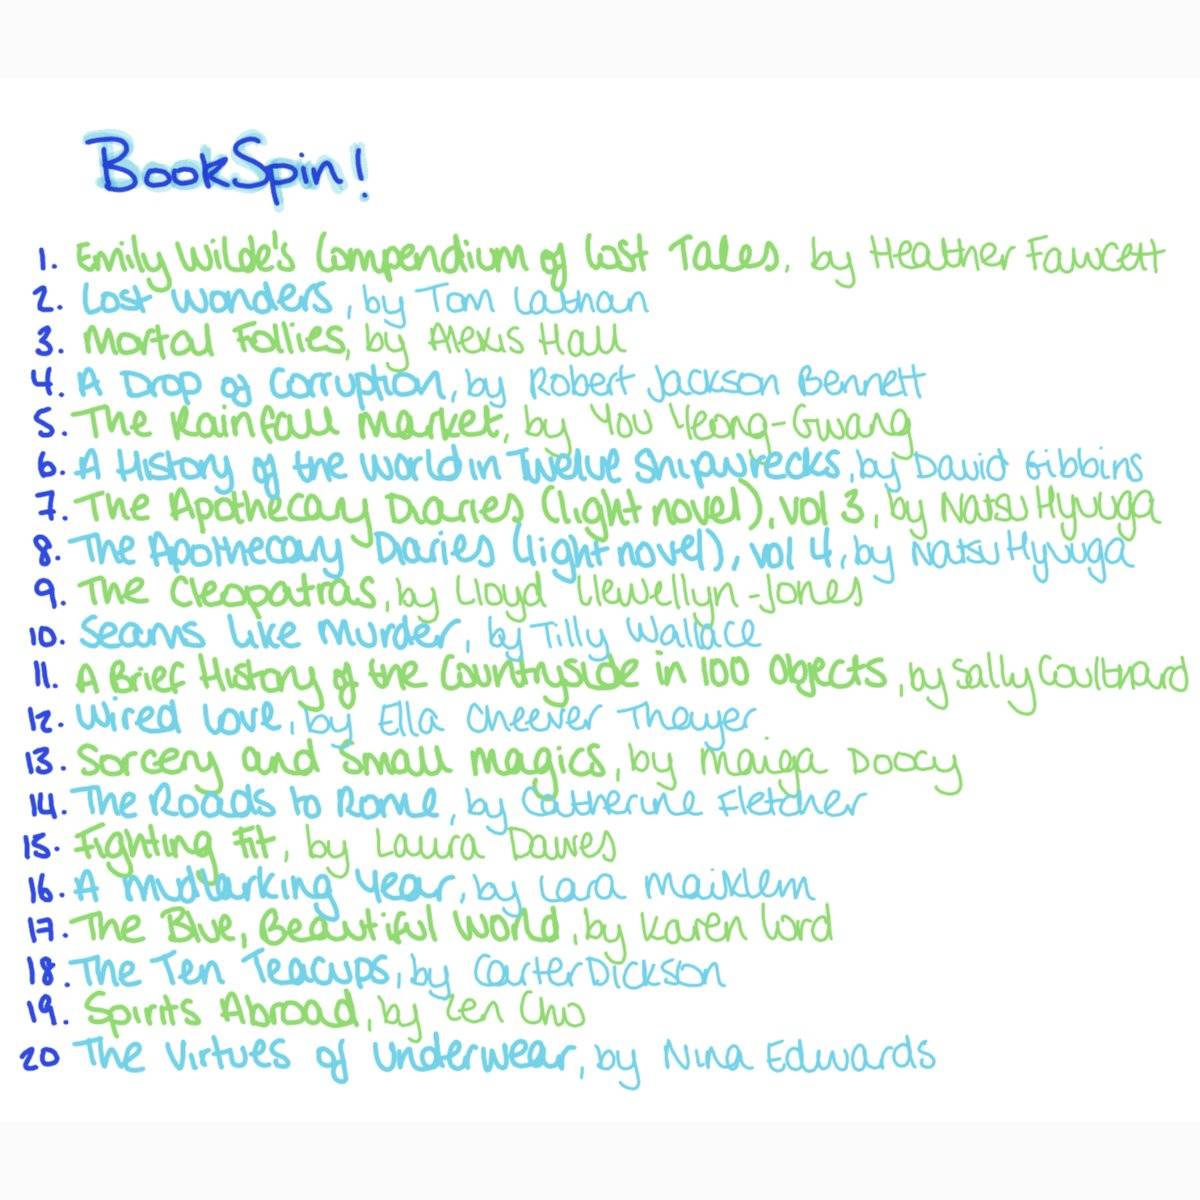 BookSpin!
1. Emily Wilde's Compendium of Lost Tales, by Heather Fawcett
2. Lost Wonders, by Tom Lathan
3. Mortal Follies, by Alexis Hall
4. A Drop of Corruption, by Robert Jackson Bennett
5. The Rainfall Market, by You Yeong-Gwang
6. A History of the World in Twelve Shipwrecks, by David Gibbins
7. The Apothecary Diaries (light novel), vol 3, by Natsu Hyuuga
8. The Apothecary Diaries (light novel), vol 4, by Natsu Hyuuga
9. The Cleopatras, by Lloyd Llewellyn-Jones
10. Seams Like Murder, by Tilly Wallace
11. A Brief History of the Countryside in 100 Objects, by Sally Coulthard
12. Wired Love, by Ella Cheever Thayer
13. Sorcery and Small Magics, by Maiga Doocy
14. The Roads to Rome, by Catherine Fletcher
15. Fighting Fit, by Laura Dawes
16. A Mudlarking Year, by Lara Maiklem
17. The Blue, Beautiful World, by Karen Lord
18. The Ten Teacups, by Carter Dickson
19. Spirits Abroad, by Zen Cho
20 The Virtues of Underwear, by Nina Edwards